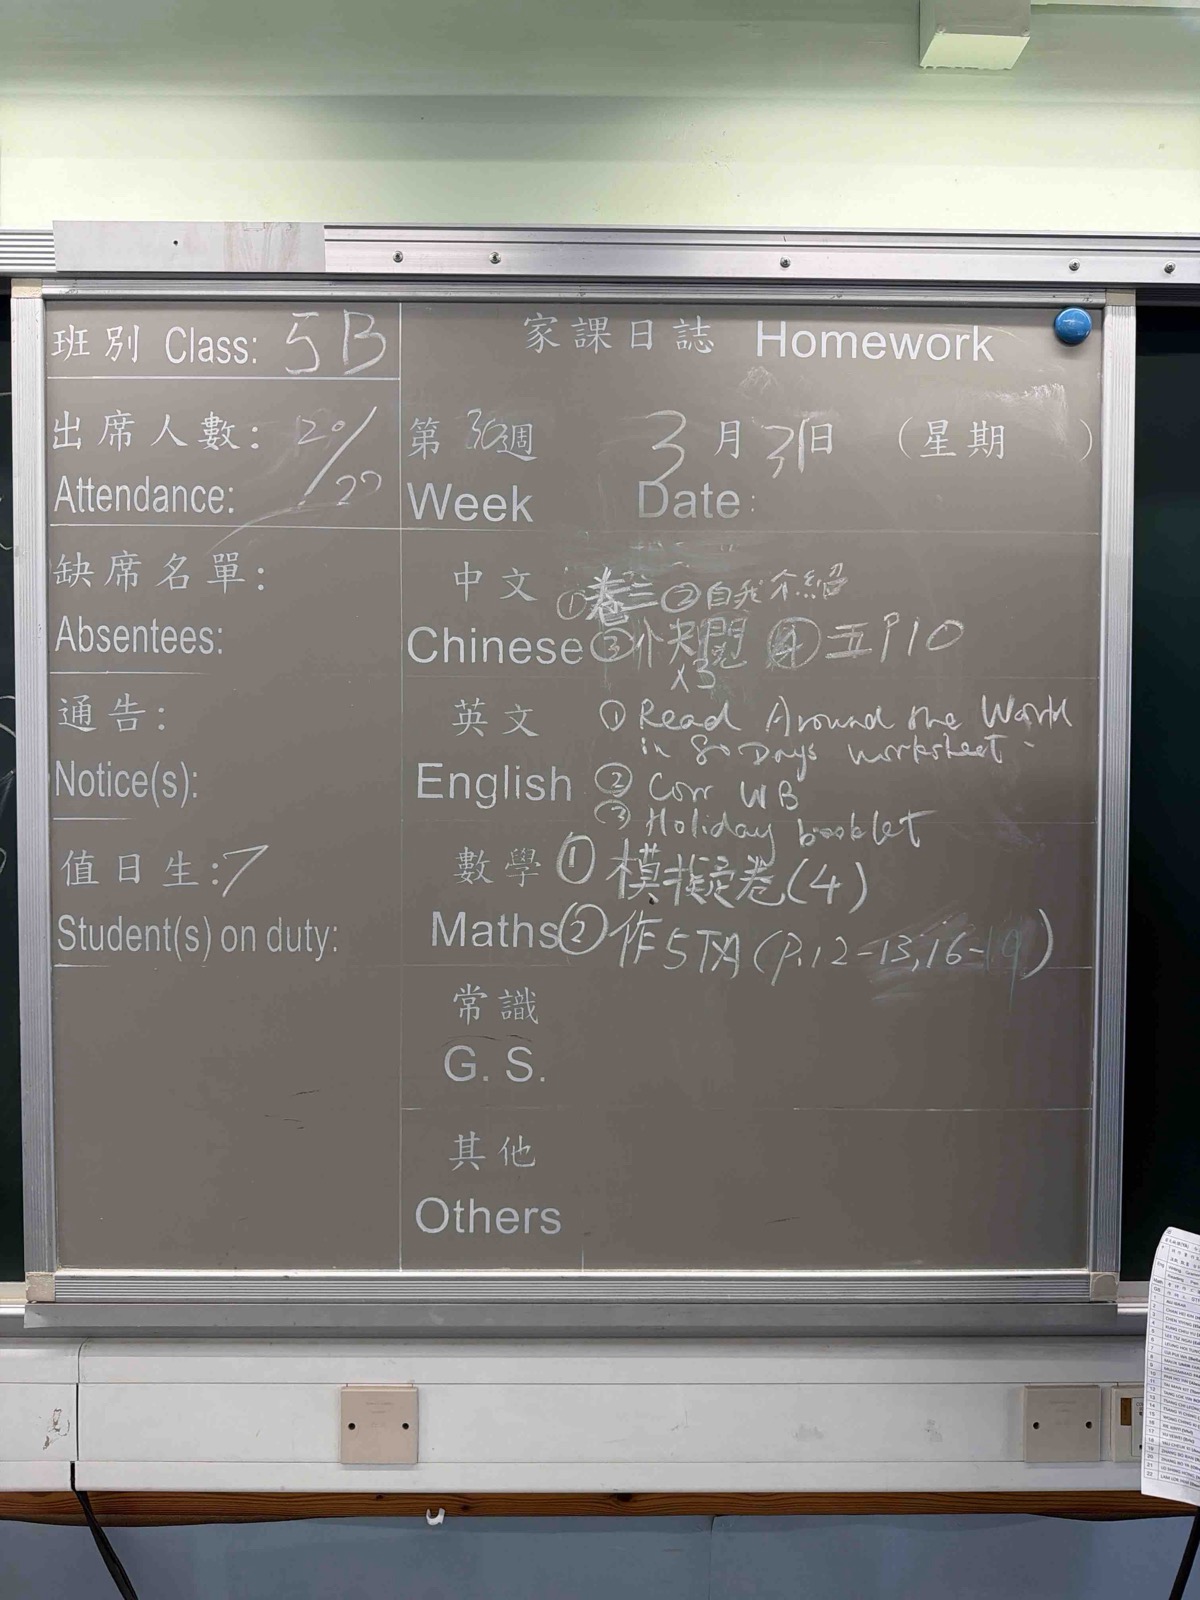 班別 Class: 5B
家課日誌 Homework
出席人數: 20/22
Attendance:
第 30 週 3月31日 (星期 )
Week Date:
缺席名單:
Absentees:
中文 ①卷三 ②自我介紹
Chinese ③ x3 ④五P10
通告:
Notice(s):
英文 ① Read Around the World
in 80 Days worksheet.
English ② Corr WB
③ Holiday booklet
值日生: 7
Student(s) on duty:
數學 ① 模擬卷(4)
Maths ② 作5下A (P.12-13,16-19)
常識
G. S.
其他
Others